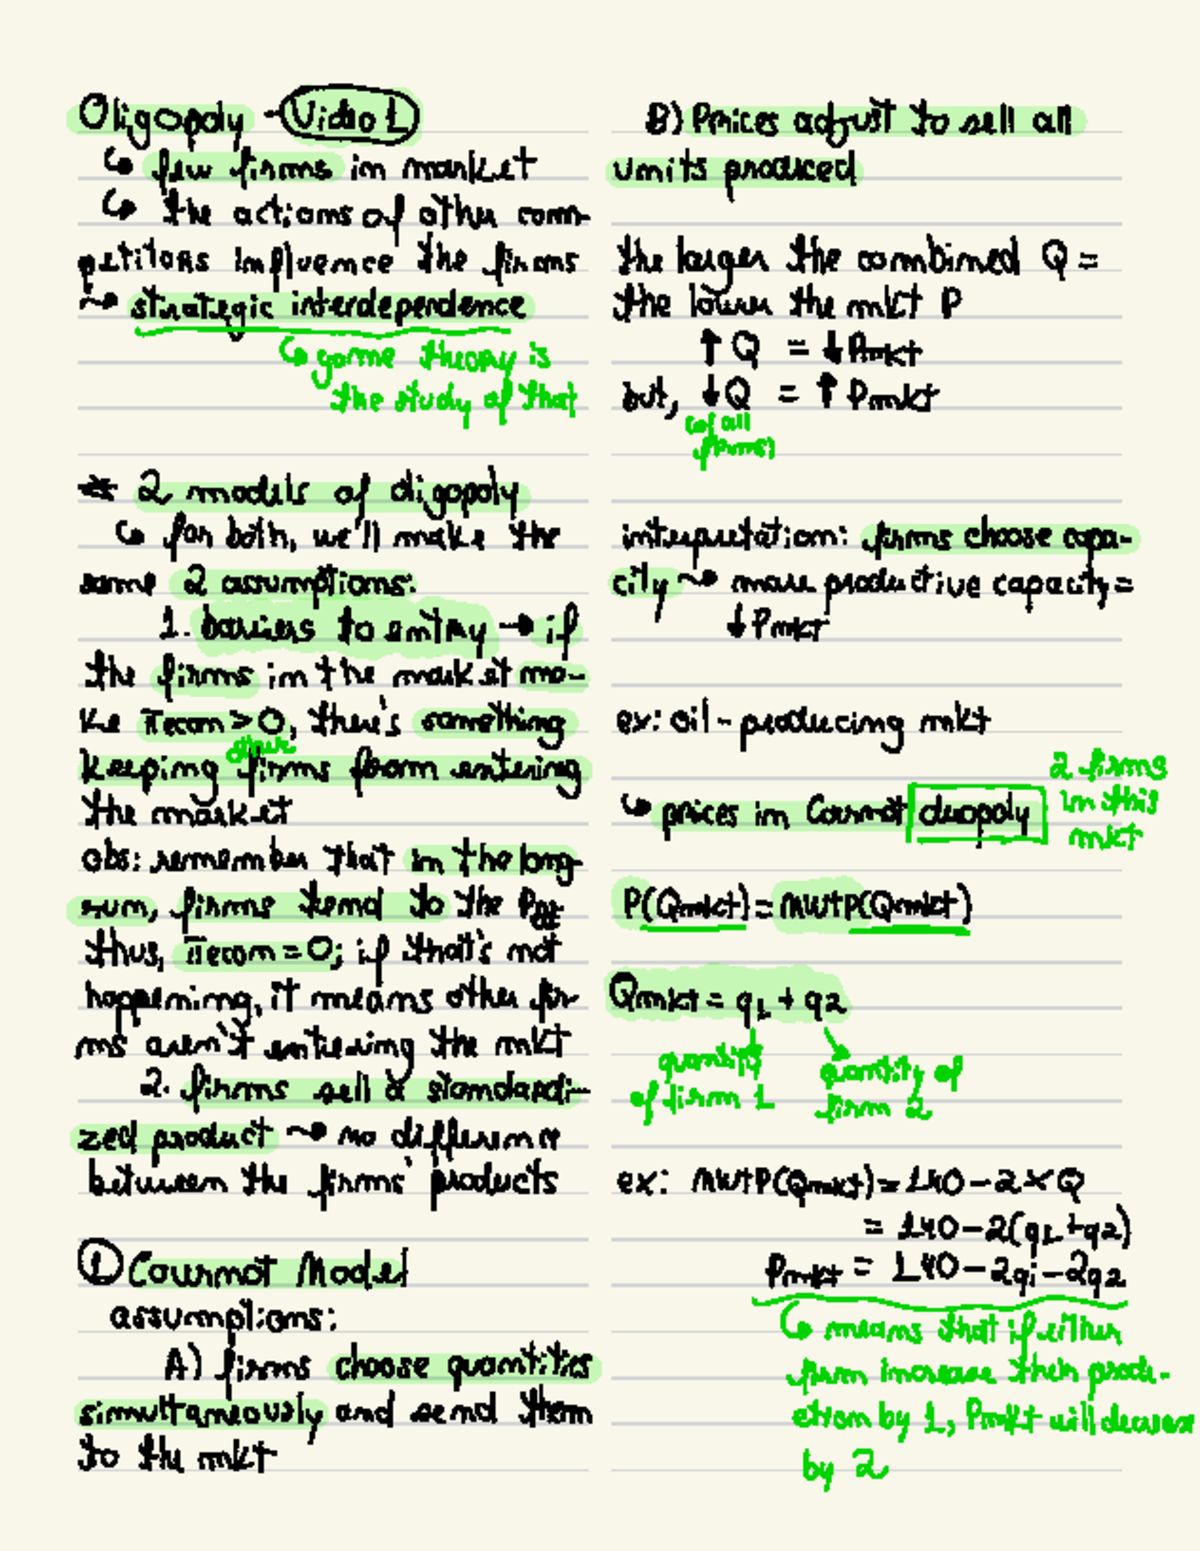 Oligopoly - Video 1
↳ few firms in market
↳ the actions of other com-
petitors influence the firms
~> strategic interdependence
↳ game theory is
the study of that
* 2 models of oligopoly
↳ for both, we'll make the
same 2 assumptions:
1. barriers to entry → if
the firms in the market ma-
ke πecon > 0, there's something
other
keeping firms from entering
the market
obs: remember that in the long-
run, firms tend to the
thus, πecon = 0; if that's not
happening, it means other fir-
ms aren't entering the mkt
2. firms sell a standardi-
zed product ~> no difference
between the firms' products
① Cournot Model
assumptions:
A) firms choose quantities
simultaneously and send them
to the mkt
B) Prices adjust to sell all
units produced
the larger the combined Q =
the lower the mkt P
↑ Q = ↓ Pmkt
but, ↓ Q = ↑ Pmkt
(of all
firms)
interpretation: firms choose capa-
city ~> more productive capacity =
↓ Pmkt
ex: oil-producing mkt
↳ prices in Cournot duopoly
2 firms
in this
mkt
P(Qmkt) = MWTP(Qmkt)
Qmkt = q1 + q2
quantity
of firm 1
quantity of
firm 2
ex: MWTP(Qmkt) = 140 - 2 x Q
= 140 - 2(q1 + q2)
Pmkt = 140 - 2q1 - 2q2
↳ means that if either
firm increase their prod-
by 1, Pmkt will decrease
by 2